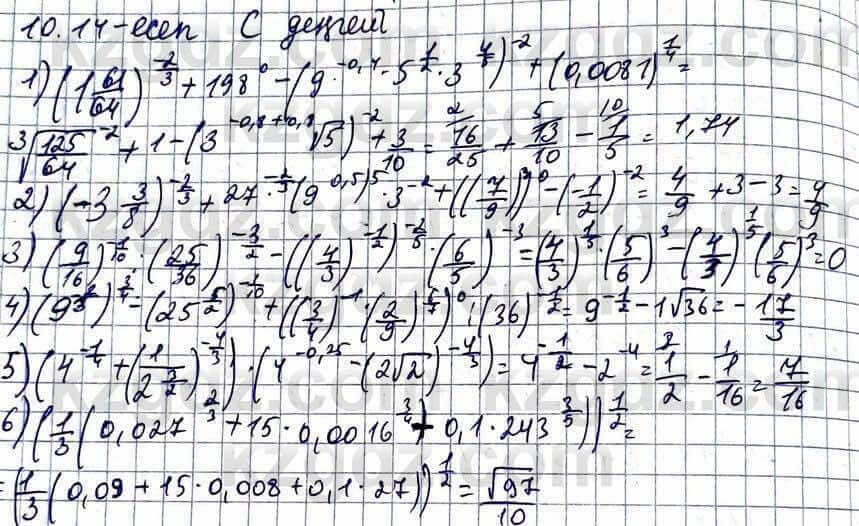 10.14-есеп C деңгей
1) (1 61/64)^(-2/3) + 198^0 - (9^(-0,4) · 5^(1/2) · 3^(4/5))^(-2) + (0,0081)^(1/4) =
∛(125/64)^(-2) + 1 - (3^(-0,8+0,8) √5)^(-2) + 3/10 = 16/25 + 13/10 - 1/5 = 1,74
2) (-3 3/8)^(-2/3) + 27^(-2/3) · (9^(0,5))^5 · 3^(-2) + ((7/9)^9)^0 - (-1/2)^(-2) = 4/9 + 3 - 3 = 4/9
3) (9/16)^(-1/10) · (25/36)^(-3/2) - ((4/3)^(-1/2))^(-2/5) · (6/5)^(-3) = (4/3)^(1/5) · (5/6)^3 - (4/3)^(1/5) (5/6)^3 = 0
4) - + ((3/4)^(-1) · (2/9)^(6/7))^0 : (36)^(-1/2) = 9^(-1/2) - 1√36 = -17/3
5) (4^(-1/4) + (1/2^(3/2))^(-4/3)) · (4^(-0,25) - (2√2)^(-4/3)) = 4^(-1/2) - 2^(-4) = 1/2 - 1/16 = 7/16
6) (1/3 (0,027^(2/3) + 15 · 0,0016^(3/4) + 0,1 · 243^(3/5)))^(1/2) =
= (1/3 (0,09 + 15 · 0,008 + 0,1 · 27))^(1/2) = √97/10
kzgdz.com